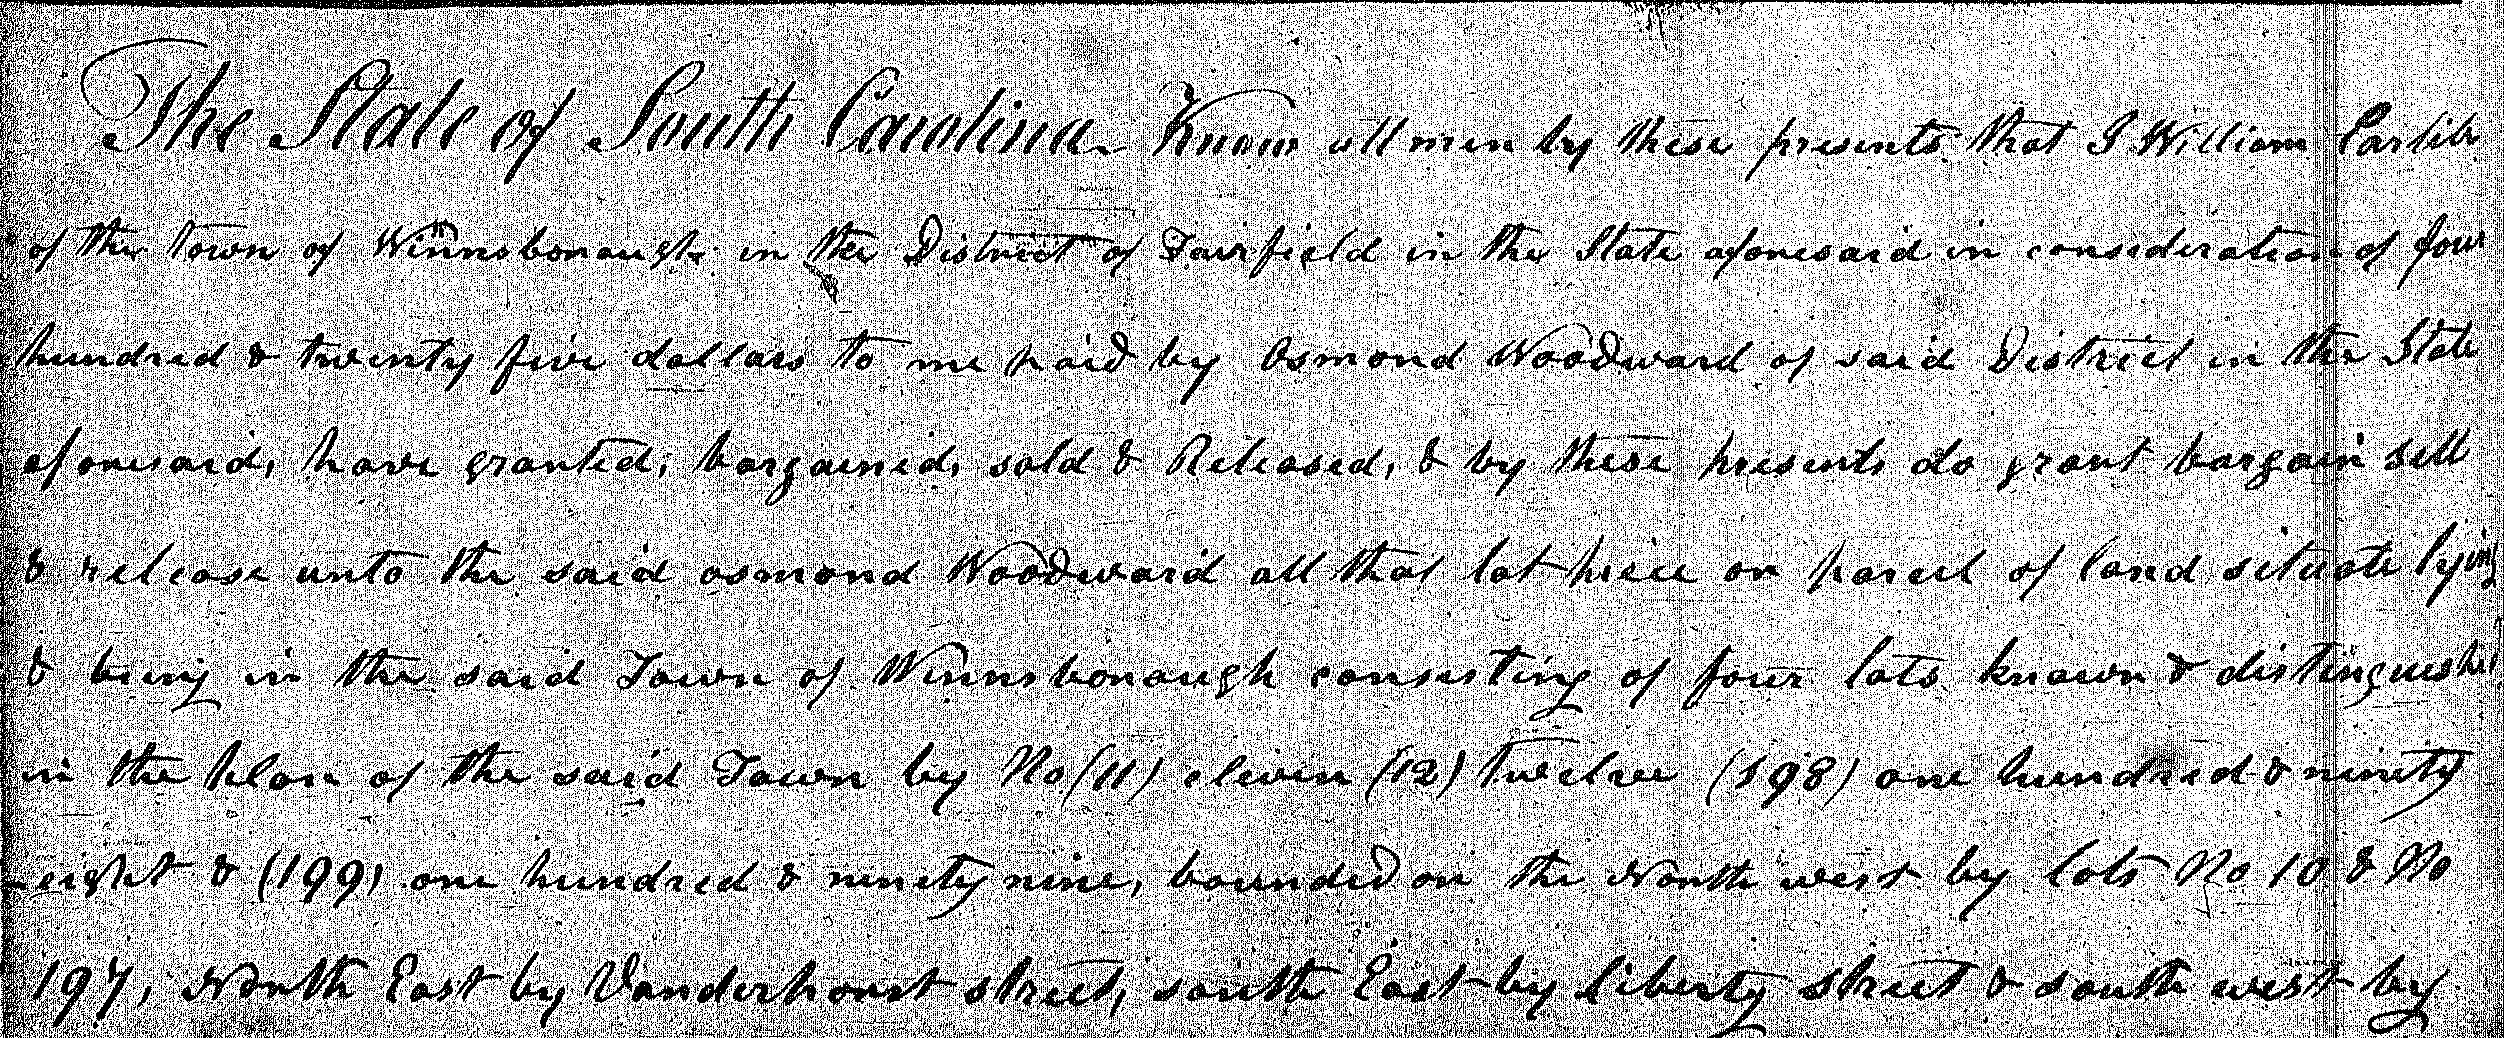 The State of South Carolina Know all men by these presents that I William Earlib
of the town of Winnsborough in the District of Fairfield in the State aforesaid in consideration of four
hundred & twenty five dollars to me paid by Osmond Woodward of said District in the State
aforesaid, have granted, bargained, sold & Released, & by these presents do grant bargain sell
& release unto the said osmond Woodward all that lot piece or parcel of land situate lying
& being in the said Town of Winnsborough consisting of four lots known & distinguished
in the plan of the said Town by No (11) eleven (12) twelve (198) one hundred & ninety
eight & (199) one hundred & ninety nine, bounded on the North west by lots No 10 & No
197, North East by Vanderhorst street, south East by liberty street & south west by